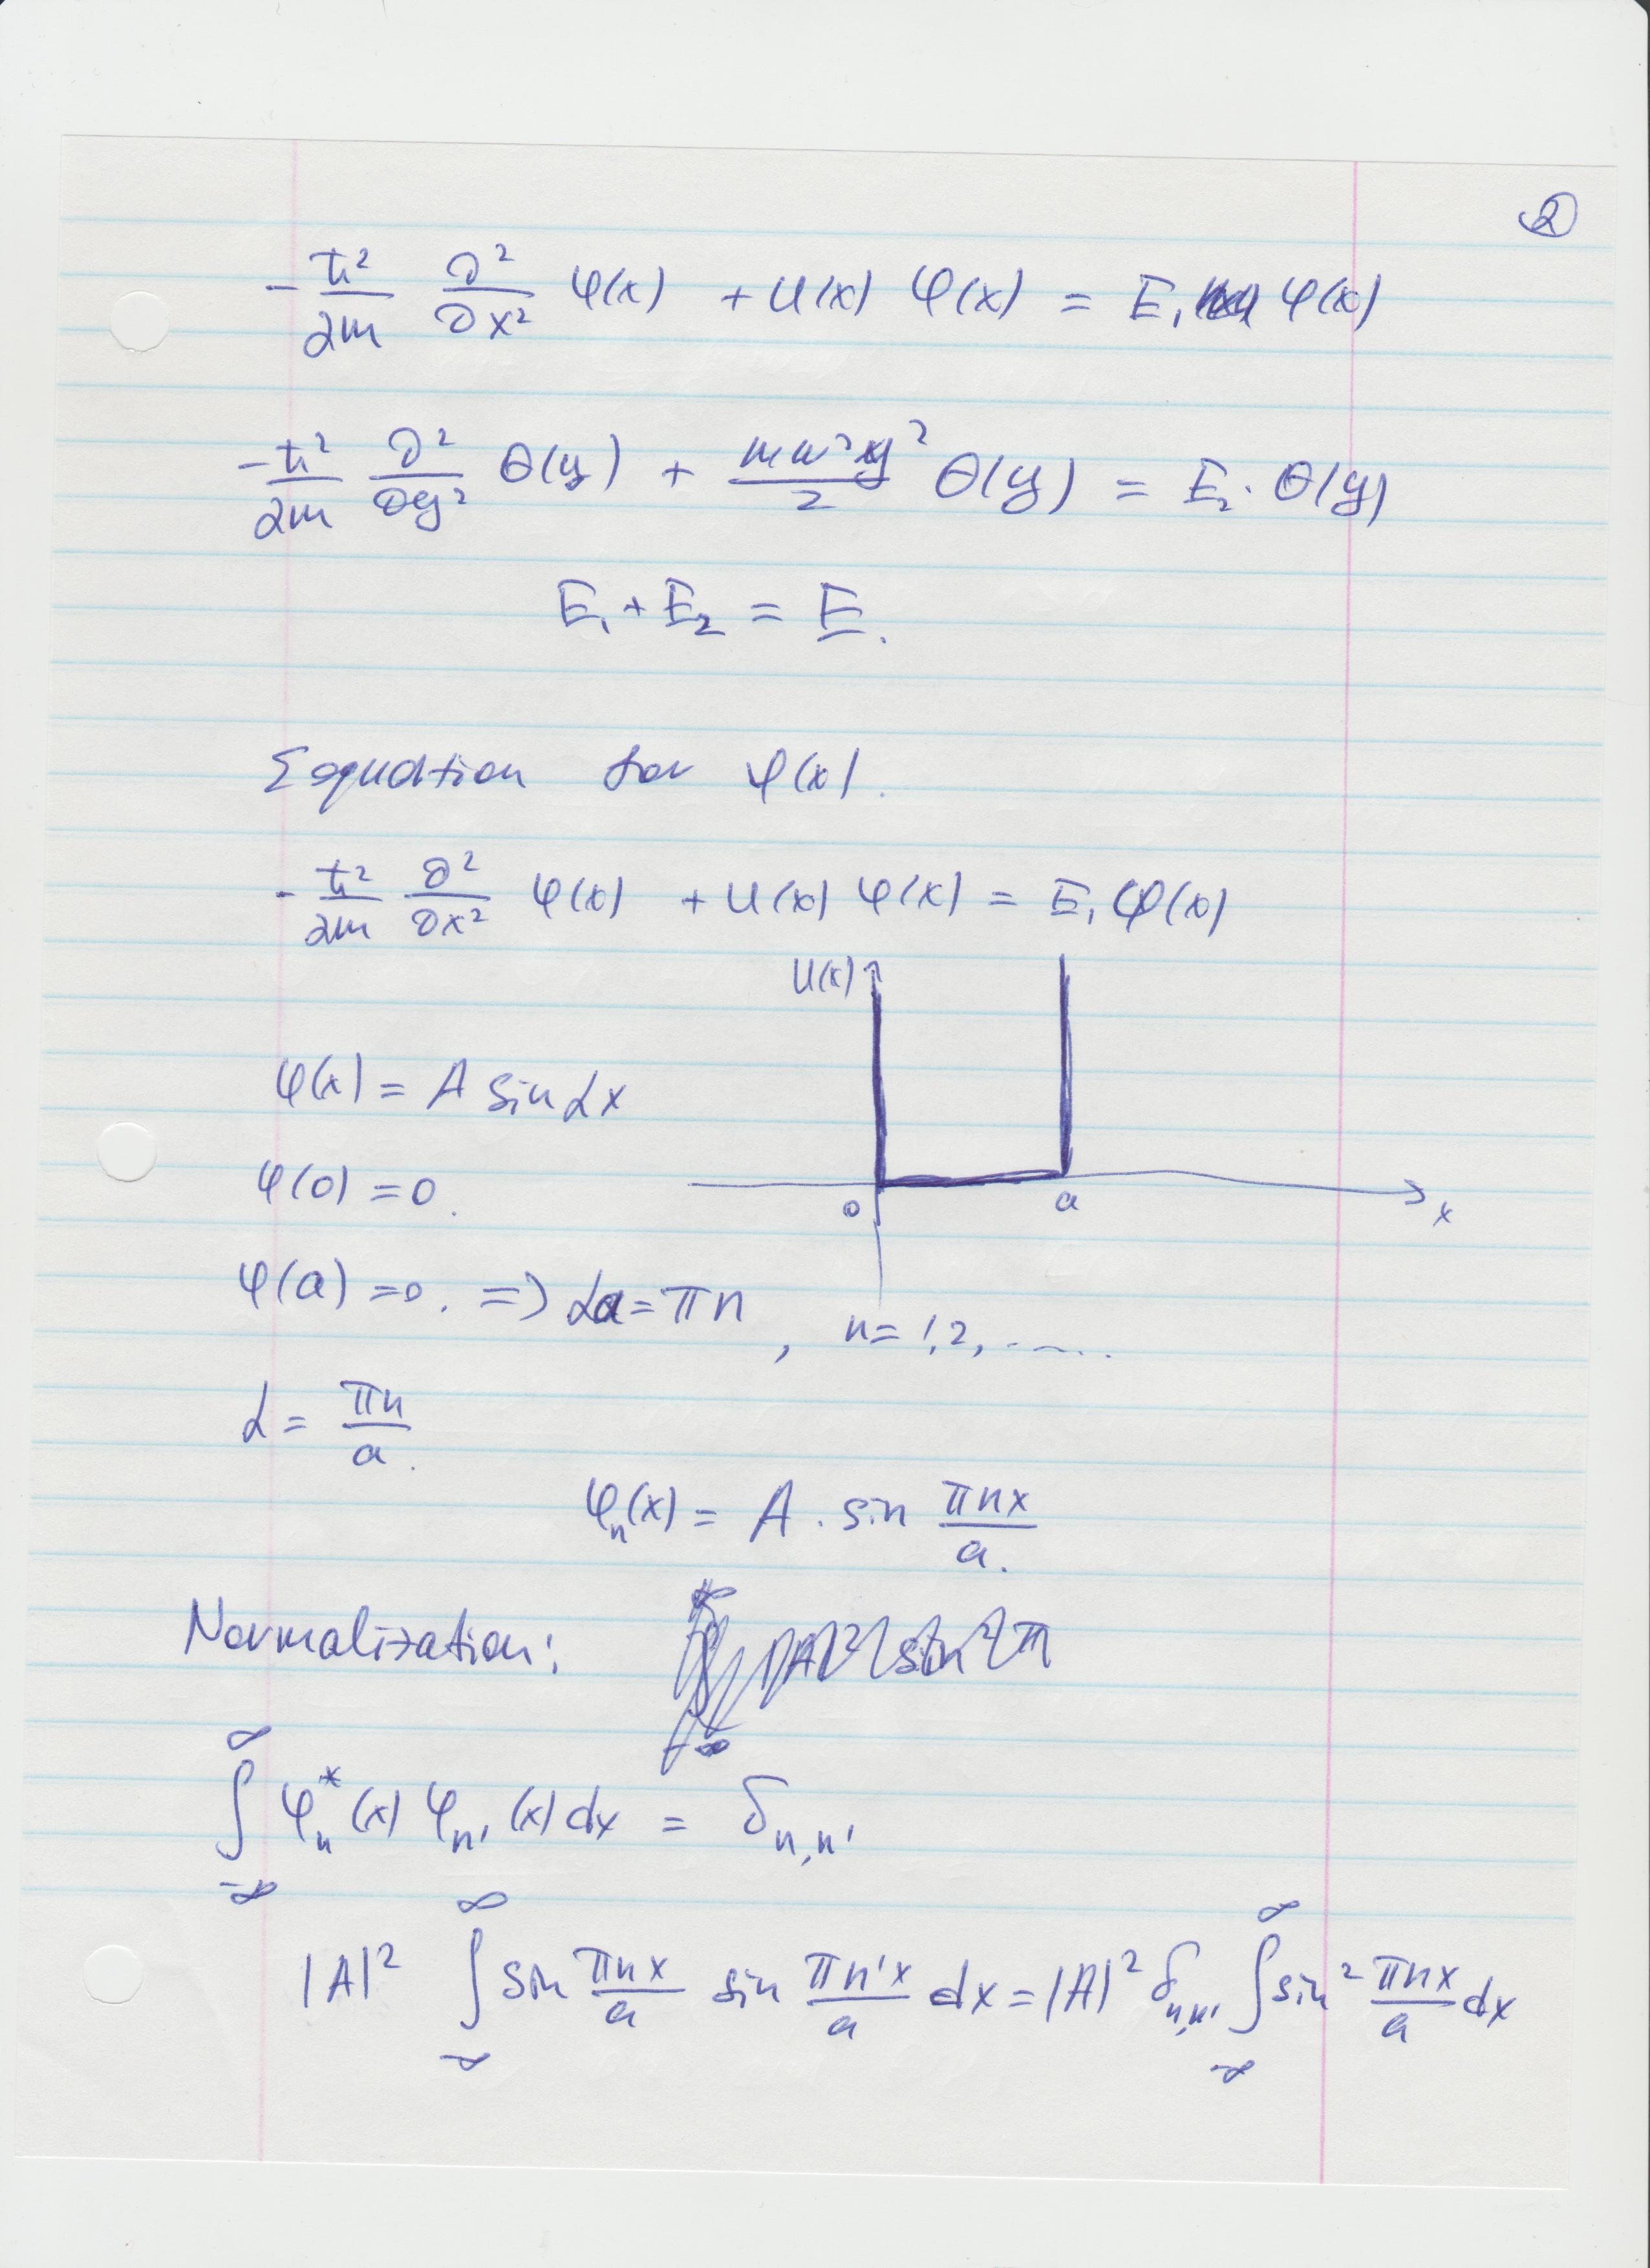 ②
-ħ²/2m ∂²/∂x² φ(x) + U(x) φ(x) = E₁ φ(x)
-ħ²/2m ∂²/∂y² Θ(y) + mω²y²/2 Θ(y) = E₂ · Θ(y)
E₁ + E₂ = E.
Equation for φ(x).
-ħ²/2m ∂²/∂x² φ(x) + U(x) φ(x) = E₁ φ(x)
U(x)
φ(x) = A sin αx
φ(0) = 0.
0 a x
φ(a) = 0. => αa = πn, n = 1, 2, .....
α = πn/a.
φₙ(x) = A · sin πnx/a.
Normalization: ∫ |A|² sin² π
∫_{-∞}^{∞} φₙ*(x) φₙ'(x) dx = δₙ,ₙ'
|A|² ∫_{-∞}^{∞} sin πnx/a sin πn'x/a dx = |A|² δₙ,ₙ' ∫_{-∞}^{∞} sin² πnx/a dx